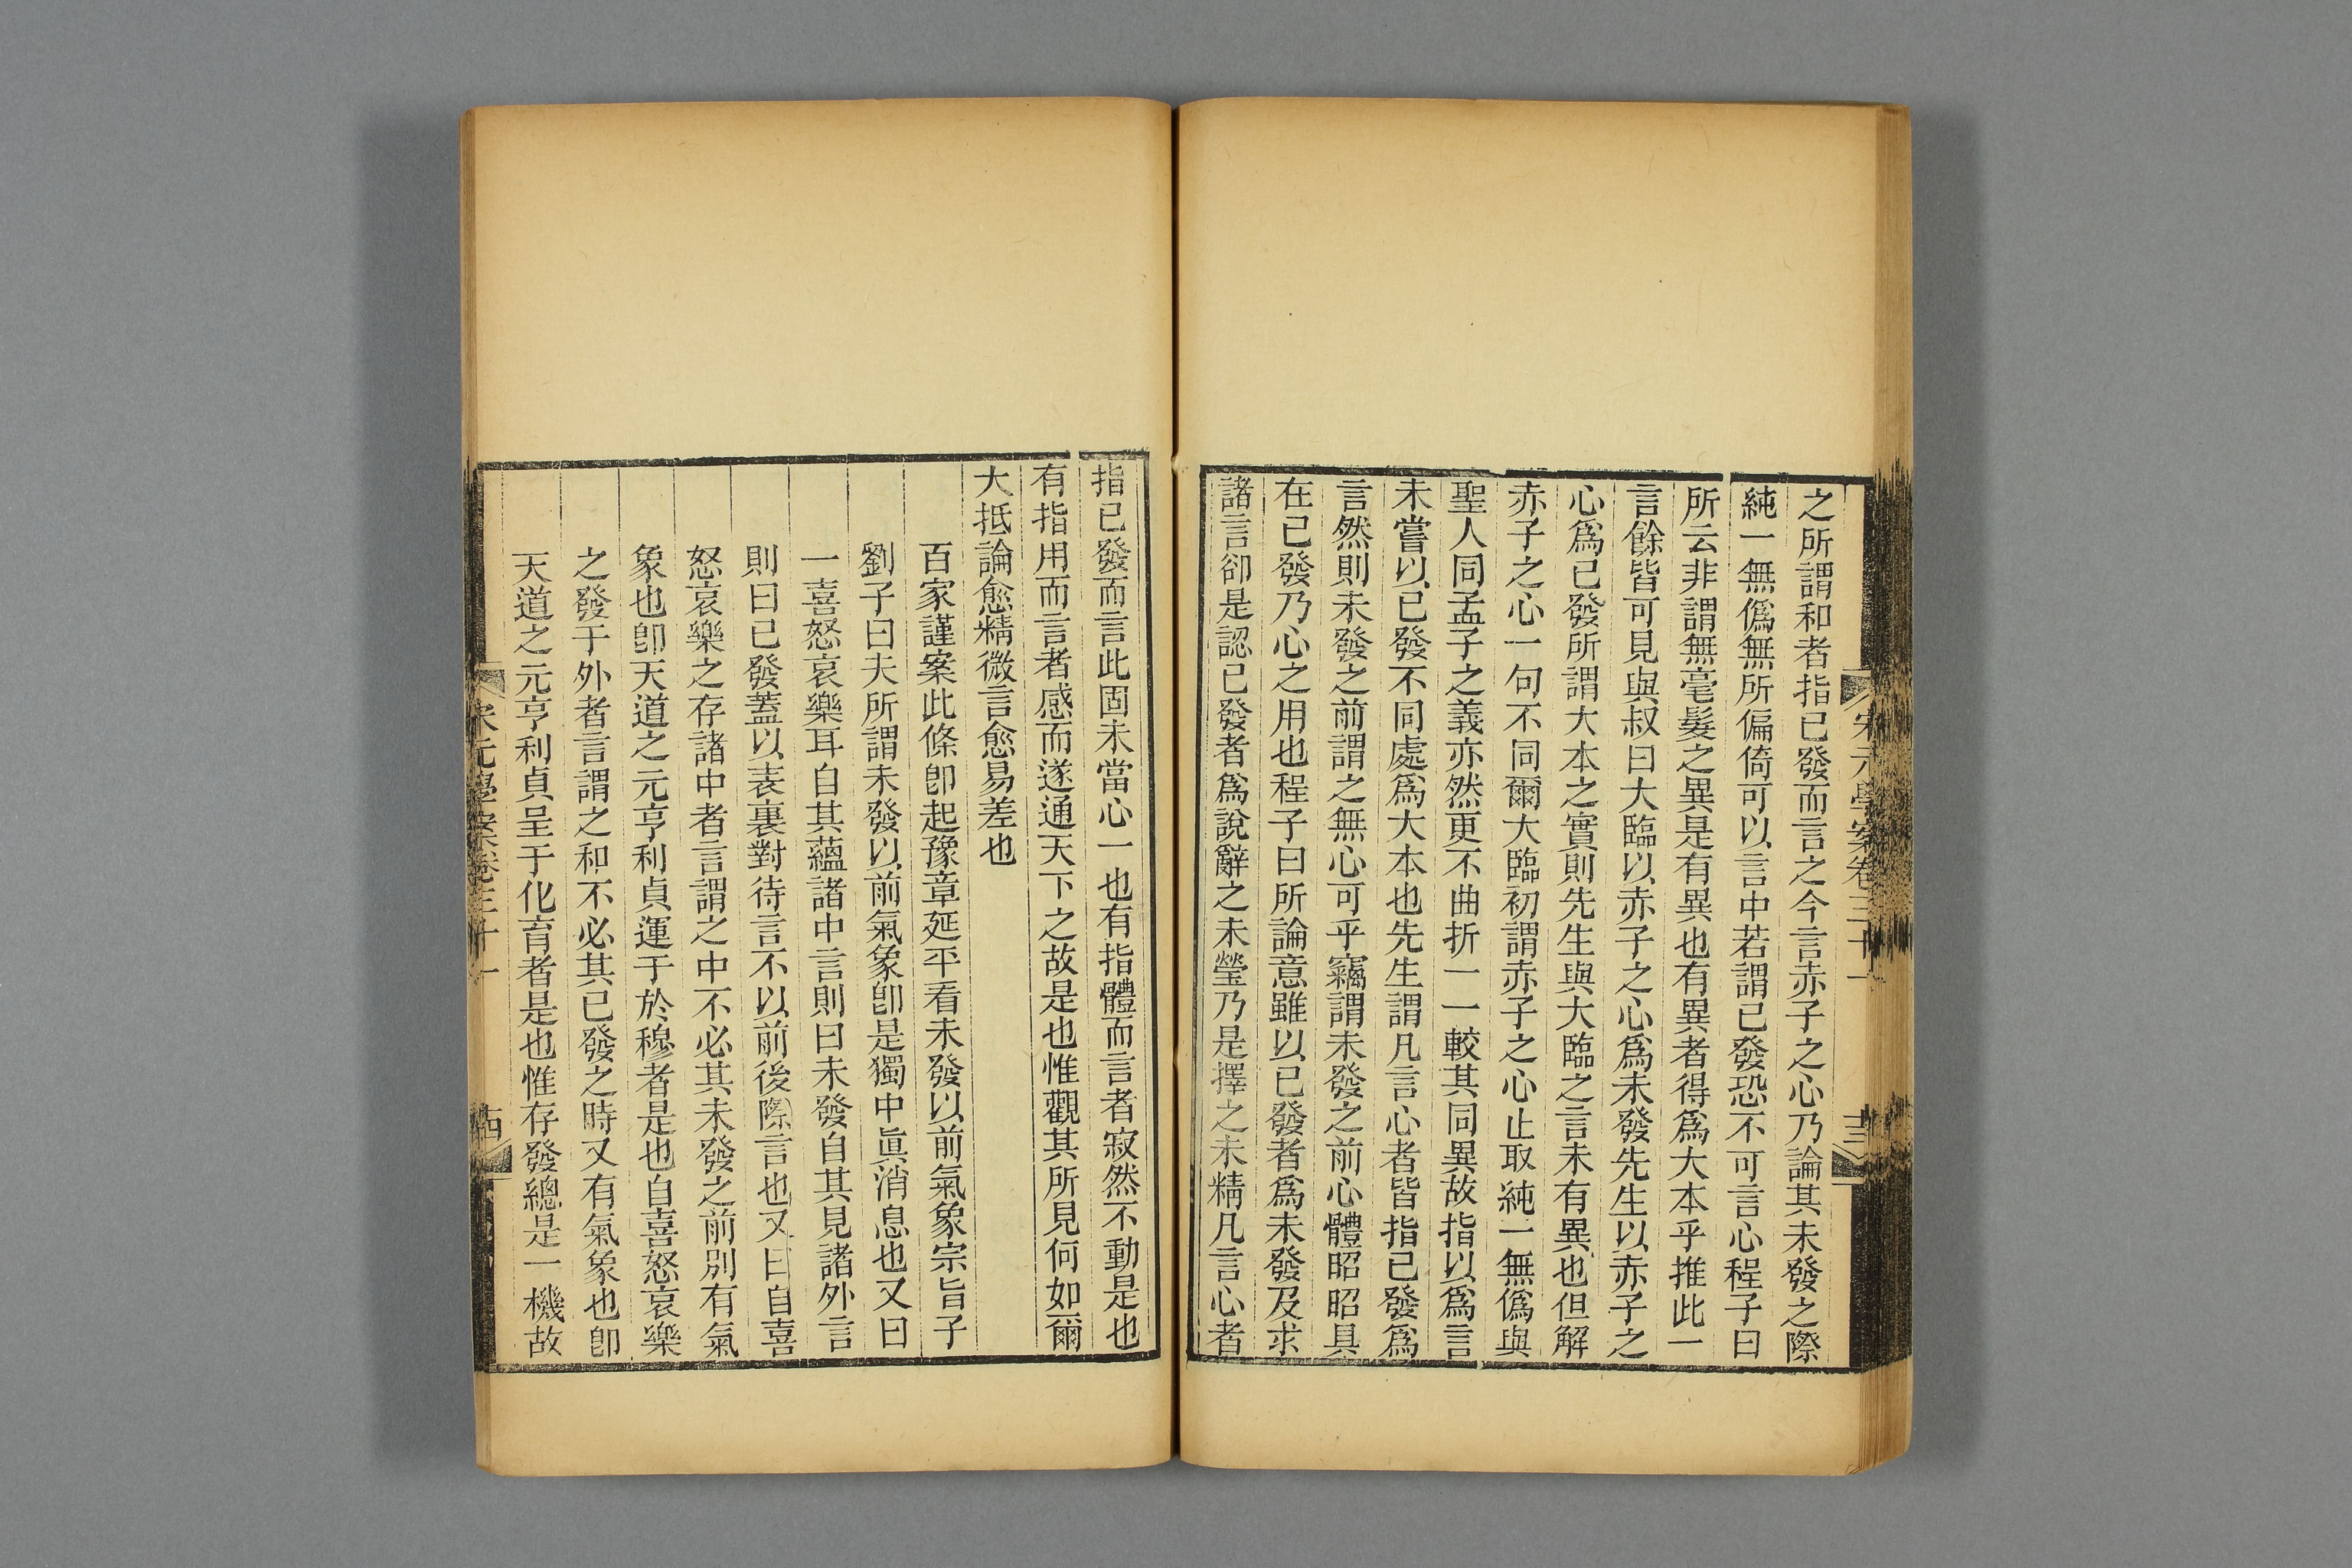 宋元學案卷三十一
十三
之所謂和者指已發而言之今言赤子之心乃論其未發之際
純一無僞無所偏倚可以言中若謂已發恐不可言心程子曰
所云非謂無毫髮之異是有異也有異者得爲大本乎推此一
言餘皆可見與叔曰大臨以赤子之心爲未發先生以赤子之
心爲已發所謂大本之實則先生與大臨之言未有異也但解
赤子之心一句不同爾大臨初謂赤子之心止取純一無僞與
聖人同孟子之義亦然更不曲折一一較其同異故指以爲言
未嘗以已發不同處爲大本也先生謂凡言心者皆指已發爲
言然則未發之前謂之無心可乎竊謂未發之前心體昭昭具
在已發乃心之用也程子曰所論意雖以已發者爲未發及求
諸言卻是認已發者爲說辭之未瑩乃是擇之未精凡言心者
指已發而言此固未當心一也有指體而言者寂然不動是也
有指用而言者感而遂通天下之故是也惟觀其所見何如爾
大抵論愈精微言愈易差也
百家謹案此條卽起豫章延平看未發以前氣象宗旨子
劉子曰夫所謂未發以前氣象卽是獨中眞消息也又曰
一喜怒哀樂耳自其蘊諸中言則曰未發自其見諸外言
則曰已發蓋以表裏對待言不以前後際言也又曰自喜
怒哀樂之存諸中者言謂之中不必其未發之前別有氣
象也卽天道之元亨利貞運于於穆者是也自喜怒哀樂
之發于外者言謂之和不必其已發之時又有氣象也卽
天道之元亨利貞呈于化育者是也惟存發總是一機故
宋元學案卷三十一
十四